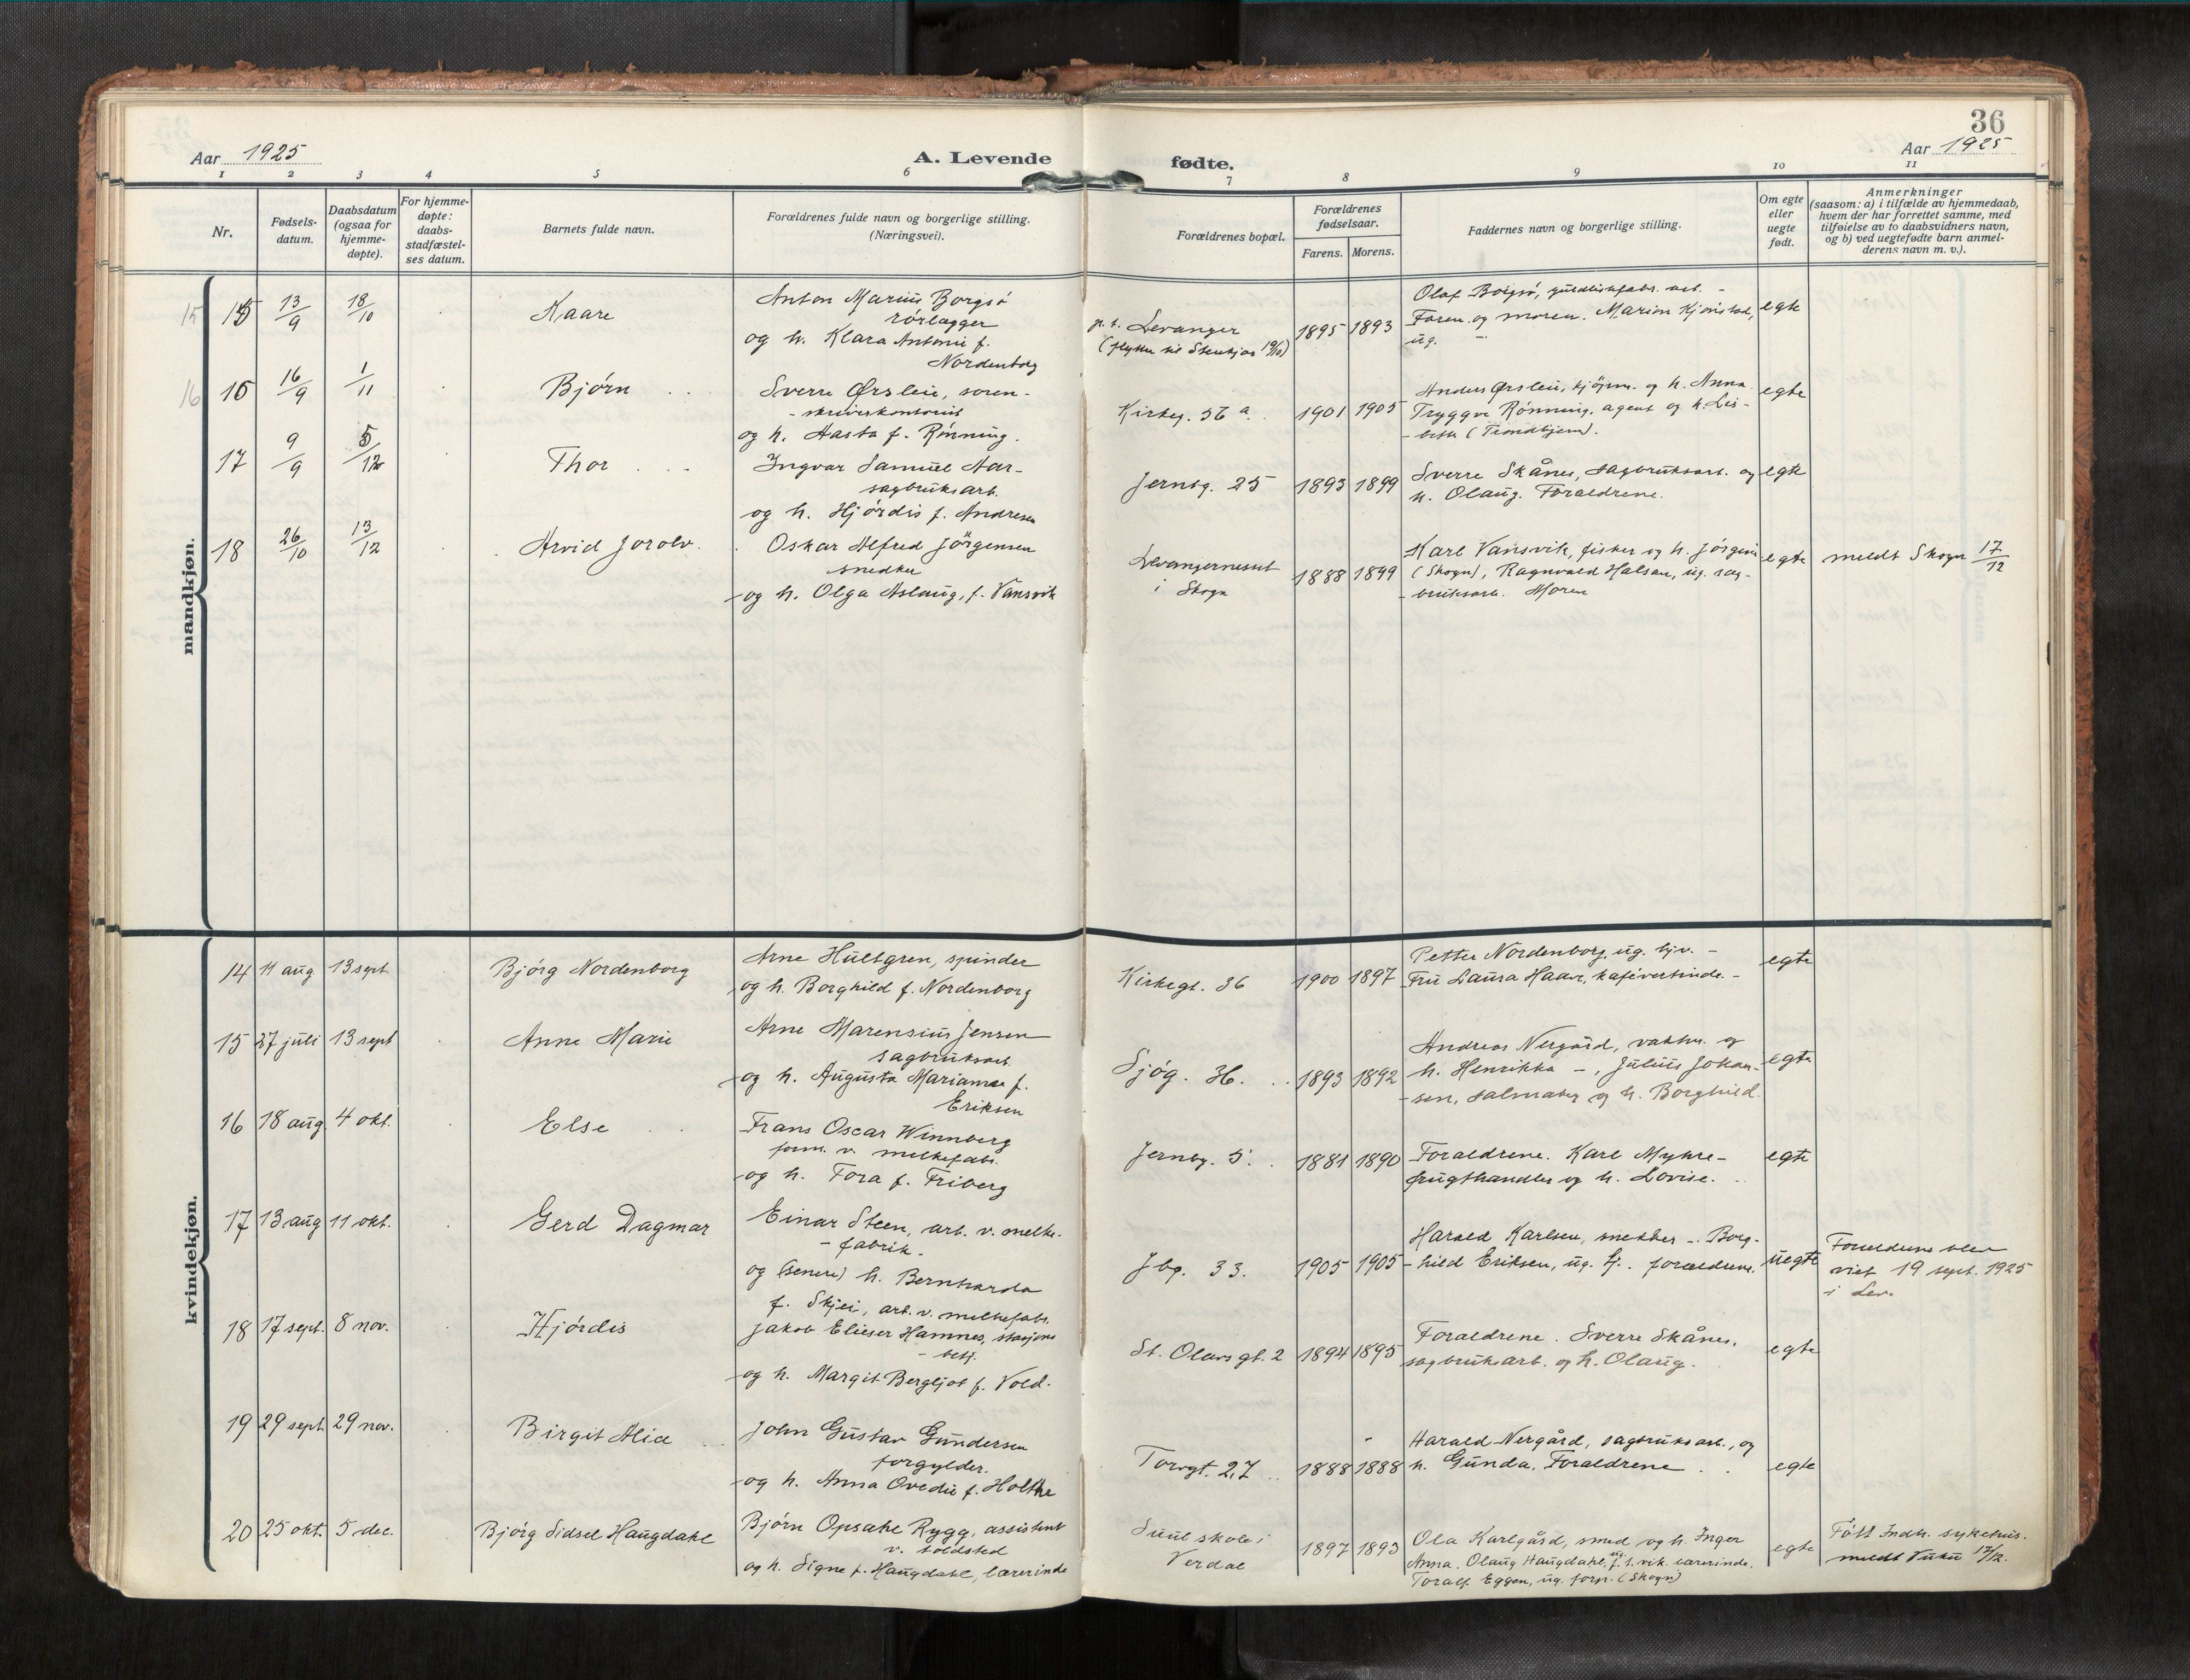 36
Aar 1925
A. Levende fødte.
Aar 1925
1 2 3 4 5 6 7 8 9 10 11
Nr.
Fødsels-
datum.
Daabsdatum
(ogsaa for
hjemme-
døpte).
For hjemme-
døpte:
daabs-
stadfæstel-
ses datum.
Barnets fulde navn.
Forældrenes fulde navn og borgerlige stilling.
(Næringsvei).
Forældrenes bopæl.
Forældrenes
fødselsaar.
Farens. Morens.
Faddernes navn og borgerlige stilling.
Om egte
eller
uegte
født.
Anmerkninger
(saasom: a) i tilfælde av hjemmedaab,
hvem der har forrettet samme, med
tilføielse av to daabsvidners navn,
og b) ved uegtefødte barn anmel-
derens navn m. v.).
mandkjøn.
15 15 13/9 18/10 Kaare
Anton Marius Borgsö
rörlægger
og h. Klara Antonie f.
Nordenborg
p. t. Levanger
(flytter til Stenkjær 19/10)
1895 1893
Olaf Borgsö, arb. -
Faren og moren. Marion Kjönstad,
ug. -
egte
16 16 16/9 1/11 Björn
Sverre Ørsleie, soren-
- skriverkontorist
og h. Aasta f. Rönning.
Kirkeg. 56 a.
1901 1905
Anders Ørsleie, kjöpm. og h. Anna
Tryggve Rönning, agent og h. Lis-
- beth (Trondhjem).
egte
17 9/9 5/12 Thor
Ingvar Samuel Aar-
sagbruksarb.
og h. Hjördis f. Andresen
Jernbg. 25
1893 1899
Sverre Skånes, sagbruksarb. og
h. Olaug. Foraeldrene.
egte
18 26/10 13/12 Arvid Jorolv.
Oskar Alfred Jörgensen
snedker
og h. Olga Aslaug, f. Vansvik
Levangernesset
i Skogn
1888 1899
Karl Vansvik, fisker og h. Jörgine
(Skogn), Ragnvald Halsan, ug. sag-
- bruksarb. Moren
egte
meldt Skogn 17/12
kvindekjøn.
14 11 aug 13 sept. Bjórg Nordenborg
Arne Hultgren, spinder
og h. Borghild f. Nordenborg
Kirkegt. 36
1900 1897
Petter Nordenborg, ug. -
Fru Laura Haar, kafévertinde. -
egte
15 27 juli 13 sept Anne Marie
Arne Marensius Jensen
sagbruksarb.
og h. Augusta Marianne f.
Eriksen
Sjög. 36.
1893 1892
Andreas Nergård, vaktm. og
h. Henrikke -, Julius Johan-
- sen, salmaker og h. Borghild.
egte
16 18 aug 4 okt. Else
Frans Oscar Winnberg
form. v. melkefabr.
og h. Tora f. Friberg
Jernbg. 5.
1881 1890
Foraeldrene. Karl Myhre-
frugthandler og h. Lovise.
egte
17 13 aug 11 okt. Gerd Dagmar
Einar Steen, arb. v. melke.
- fabrik.
og (senere) h. Bernharda
f. Skjei, arb. v. melkefabr.
Jbg. 33.
1905 1905
Harald Karlsen, snekker -. Borg-
- hild Eriksen, ug. tj. foraeldrene.
uegte
Foraeldrene blev
viet 19 sept. 1925
i Lev.
18 17 sept. 8 nov. Hjördis
Jakob Elieser Hamnes, stasjons
- betj.
og h. Margit Bergljot f. Vold.
St. Olavs gt. 2
1894 1895
Foraeldrene. Sverre Skånes,
sagbruksarb. og h. Olaug.
egte
19 29 sept. 29 nov. Birgit Alice
John Gustav Gundersen
forgylder.
og h. Anna Ovedie f. Holthe
Torvgt. 27
1888 1888
Harald Nergård, sagbruksarb., og
h. Gunda. Foraeldrene
egte
20 25 okt. 5 dec. Bjórg Sidsel Haugdahl
Björn Opsahl Rygg, assistent
v. toldsted
og h. Signe f. Haugdahl, lærerinde
Suul skole i
Verdal
1897 1893
Ola Karlgård, smed og h. Inger
Anna. Olaug Haugdahl, ug. f. t. vik. lærerinde.
Toralf Eggen, ug. forp. (Skogn)
egte
Född Indh. sykehus.
meldt Vuku 17/12.